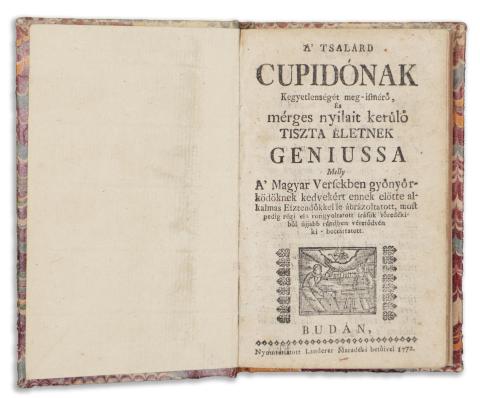 A' TSALÁRD
CUPIDÓNAK
Kegyetlenségét meg-ismérő,
És
mérges nyilait kerülő
TISZTA ÉLETNEK
GENIUSSA
Melly
A' Magyar Versekben gyönyör-
ködöknek kedvekért ennek előtte al-
kalmas Esztendőkkel le ábrázoltatott, most
pedig régi el rongyoltatott írásűk töredéki-
ből újjabb rendben vétetődvén
ki-botsáttatott.
BUDÁN,
Nyomtattatott Landerer Maradéki betőivel 1772.